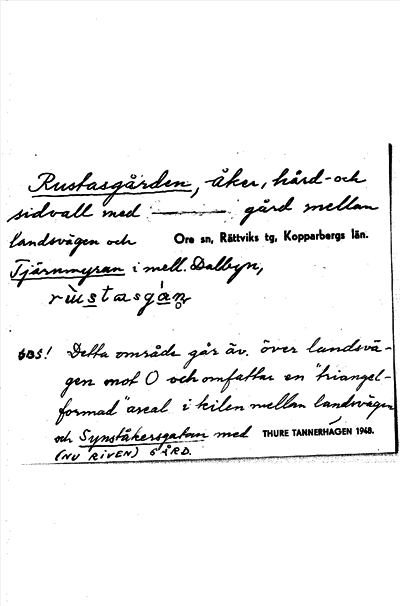 Rustasgården, åker, hård- och
sidvall med ——— gård mellan
landsvägen och Ore sn, Rättviks tg, Kopparbergs län.
Tjärnmyran i mell. Dalbyn,
OBS! Detta område går äv. över landsvä-
gen mot O och omfattar en "triangel-
formad" areal i kilen mellan landsvägen
och Synståkersgatan med THURE TANNERHAGEN 1948.
(NU RIVEN) GÅRD.